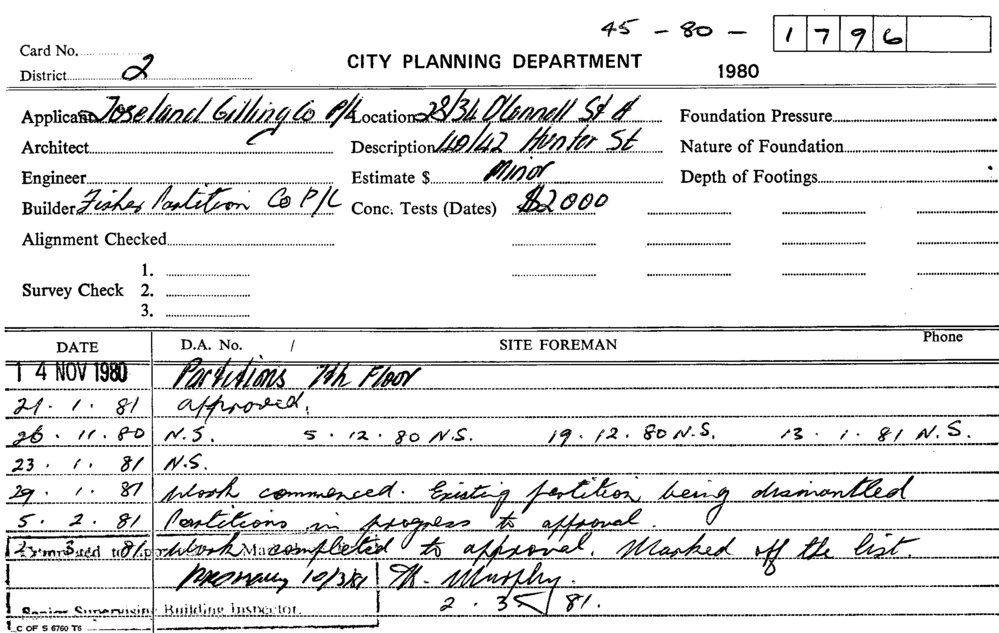 45 - 80 - 1796
Card No.
District 2
CITY PLANNING DEPARTMENT
1980
Applicant Joseland Gilling Co P/L
Location 28/34 O'Connell St &
Foundation Pressure
Architect
Description 40/42 Hunter St
Nature of Foundation
Engineer
Estimate $ Minor
Depth of Footings
Builder Fisher Partition Co P/L
Conc. Tests (Dates) $2000
Alignment Checked
1.
Survey Check 2.
3.
DATE D.A. No. / SITE FOREMAN Phone
14 NOV 1980 Partitions 7th Floor
21. 1. 81 approved.
26. 11. 80 N.S. 5. 12. 80 N.S. 19. 12. 80 N.S. 13. 1. 81 N.S.
23. 1. 81 N.S.
29. 1. 81 Work commenced. Existing partition being dismantled
5. 2. 81 Partitions in progress to approval.
3. 81 Work completed to approval. Marked off the list.
10/3/81 M. Murphy.
2. 3 81.
Senior Supervising Building Inspector.
C OF S 6760 T6